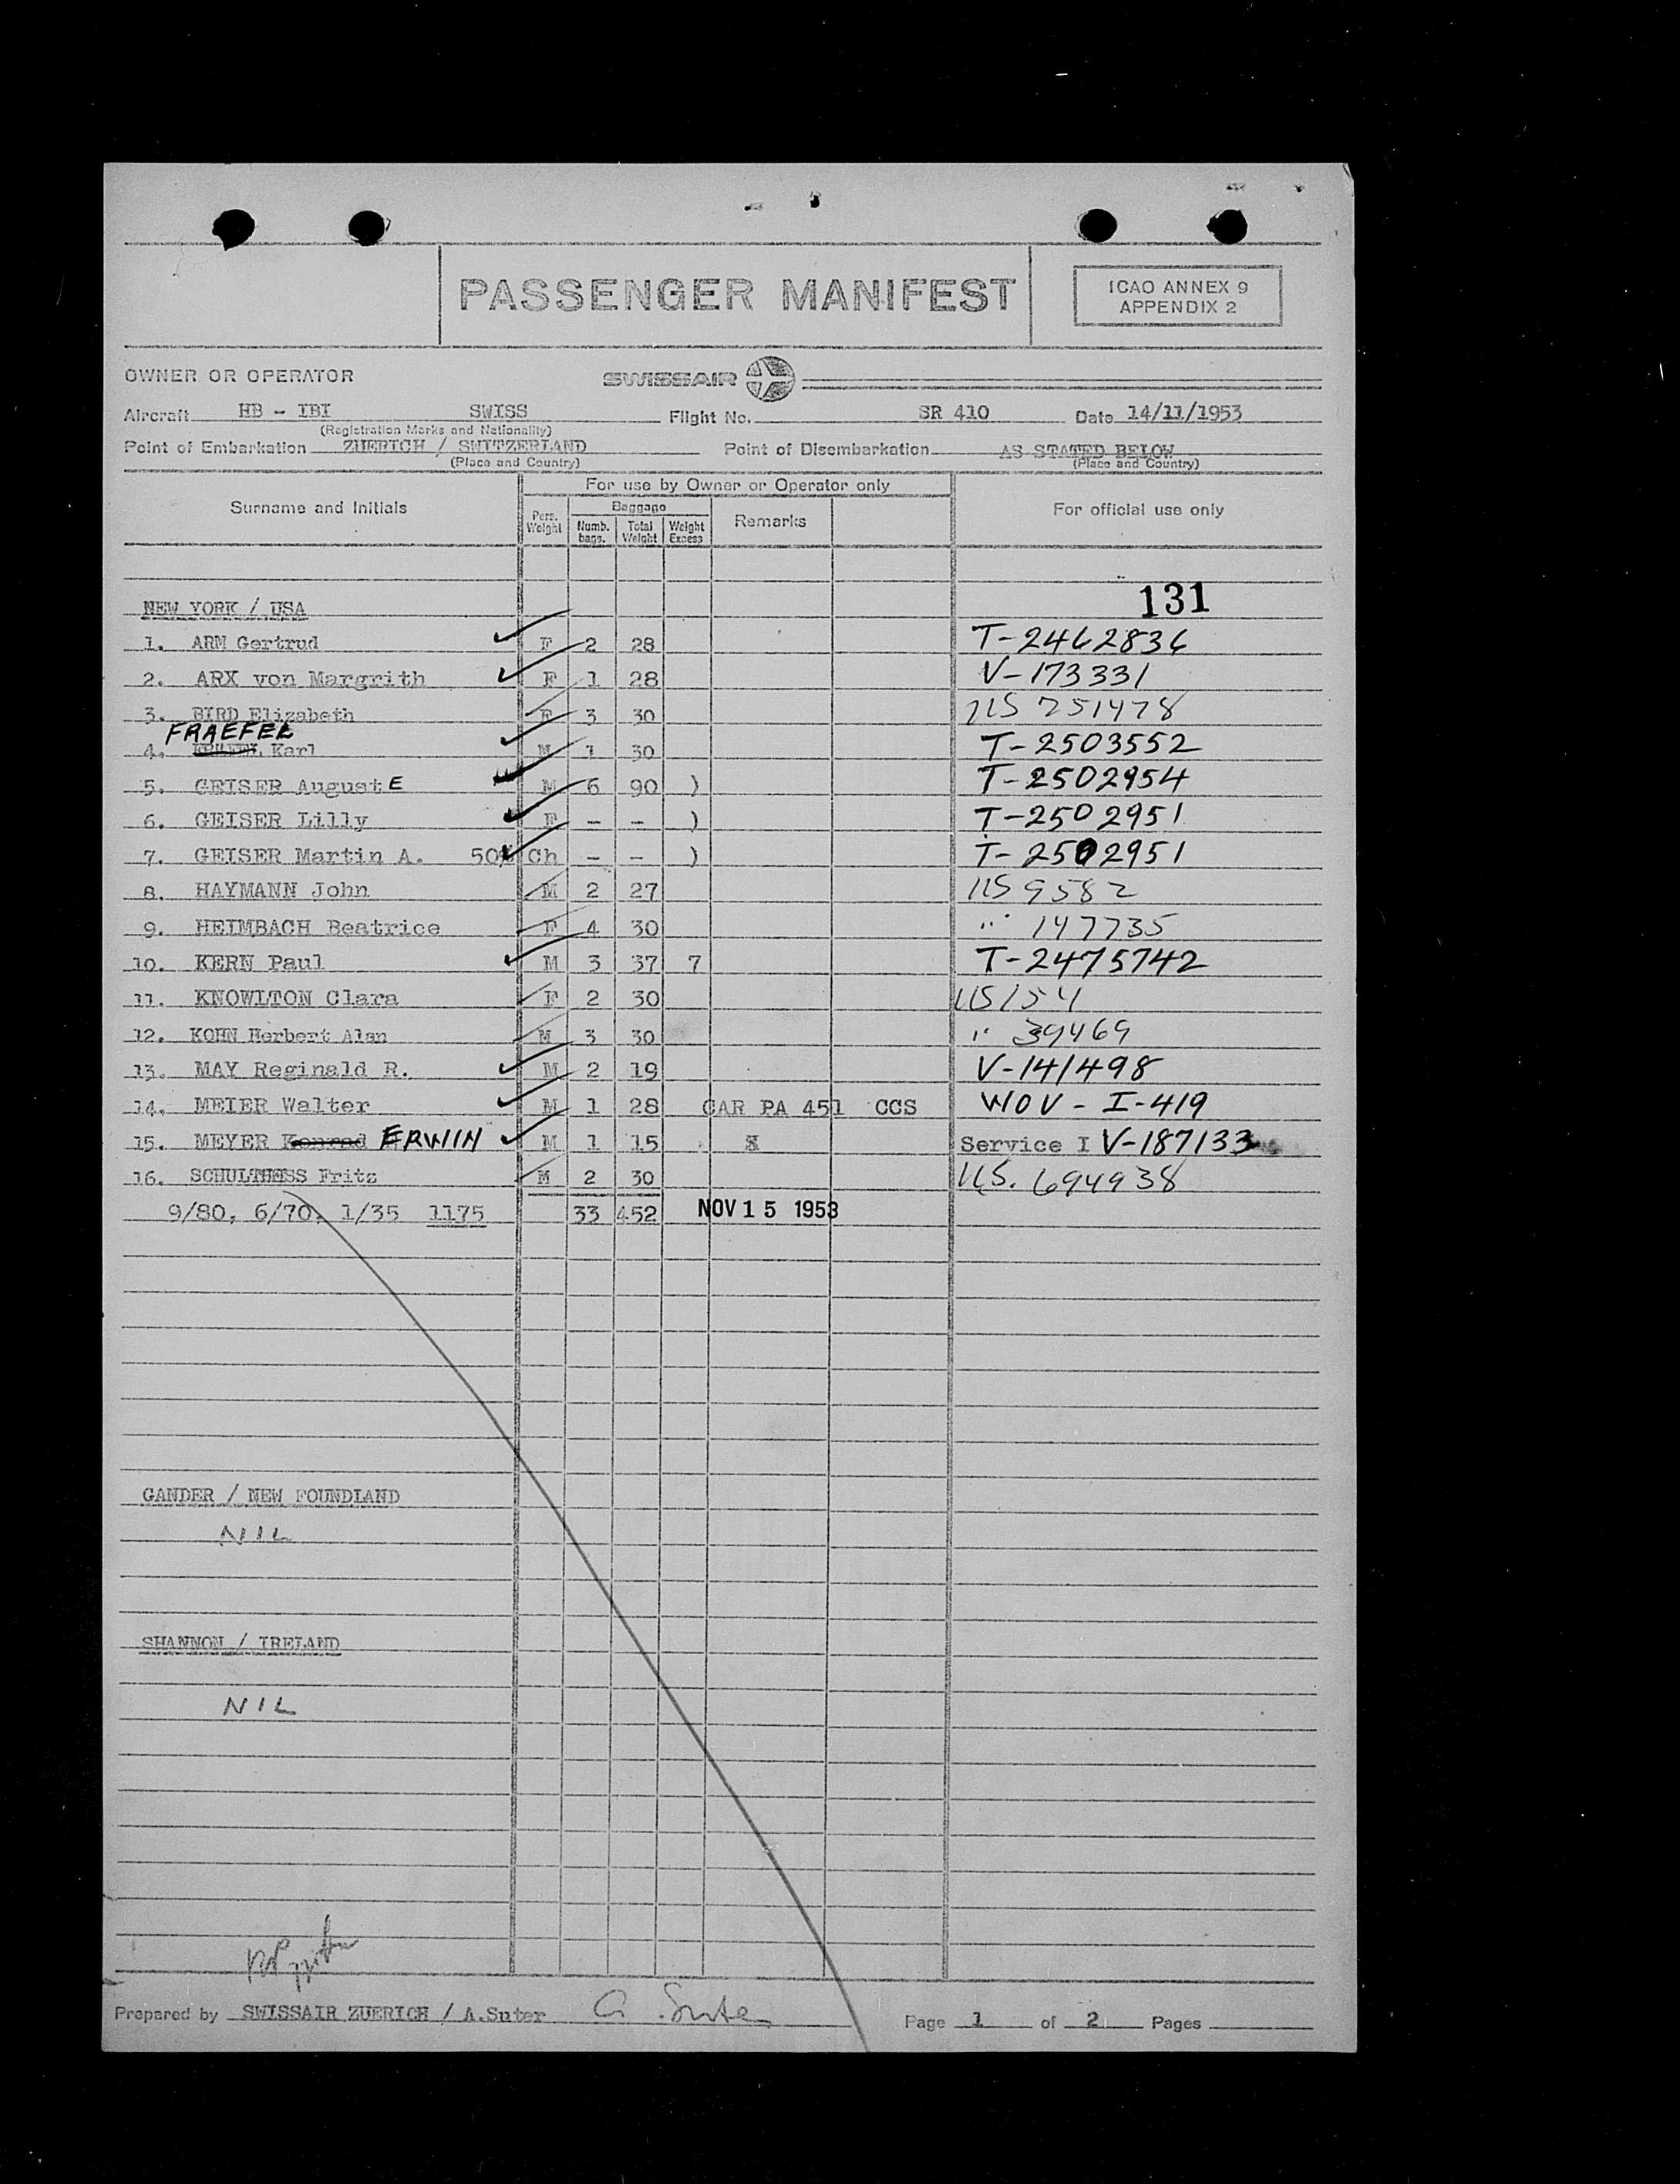 PASSENGER MANIFEST
ICAO ANNEX 9
APPENDIX 2
OWNER OR OPERATOR SWISSAIR
Aircraft HB - IBI SWISS Flight No. SR 410 Date 14/11/1953
(Registration Marks and Nationality)
Point of Embarkation ZUERICH / SWITZERLAND Point of Disembarkation AS STATED BELOW
(Place and Country) (Place and Country)
Surname and Initials For use by Owner or Operator only For official use only
Pers. Weight Baggage Remarks
Numb. bags. Total Weight Weight Excess
131
NEW YORK / USA
1. ARM Gertrud F 2 28 T-2462836
2. ARX von Margrith F 1 28 V-173331
3. BIRD Elizabeth F 3 30 US 251478
FRAEFEL
4. Karl M 1 30 T-2503552
5. GEISER August E M 6 90 ) T-2502954
6. GEISER Lilly F - - ) T-2502951
7. GEISER Martin A. 50% Ch - - ) T-2502951
8. HAYMANN John M 2 27 US 9582
9. HEIMBACH Beatrice F 4 30 " 147735
10. KERN Paul M 3 37 7 T-2475742
11. KNOWLTON Clara F 2 30 US 154
12. KOHN Herbert Alan M 3 30 " 39469
13. MAY Reginald R. M 2 19 V-141498
14. MEIER Walter M 1 28 CAR PA 451 CCS WOV - I-419
15. MEYER Konrad ERWIN M 1 15 X Service I V-187133
16. SCHULTHESS Fritz M 2 30 US. 694938
9/80, 6/70, 1/35 1175 33 452 NOV 15 1953
GANDER / NEW FOUNDLAND
NIL
SHANNON / IRELAND
NIL
Prepared by SWISSAIR ZUERICH / A.Suter A. Suter Page 1 of 2 Pages